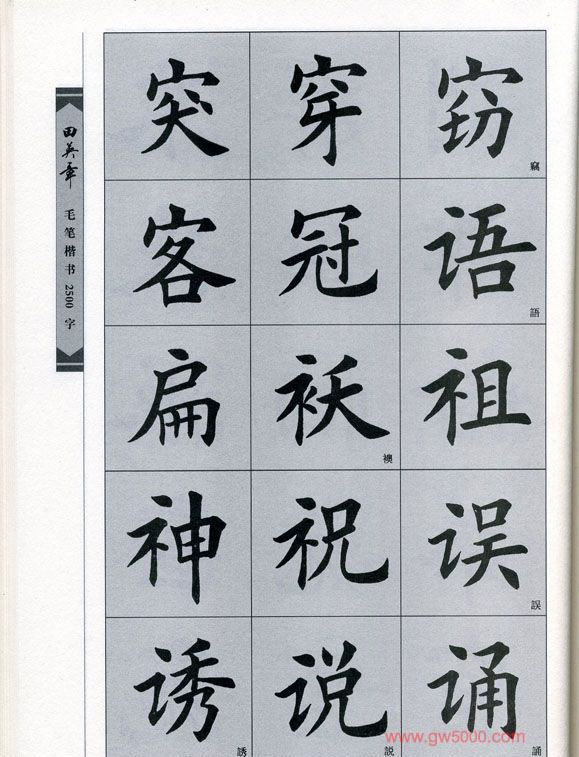 田英章 毛笔楷书 2500 字
突 穿 窃 竊
客 冠 语 語
扁 袄 襖 祖
神 祝 误 誤
诱 誘 说 説 诵 誦
www.gw5000.com